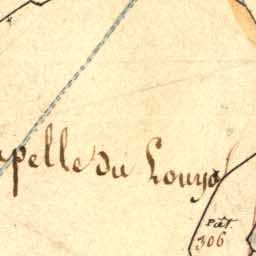 apelle du Louys
Pât.
306